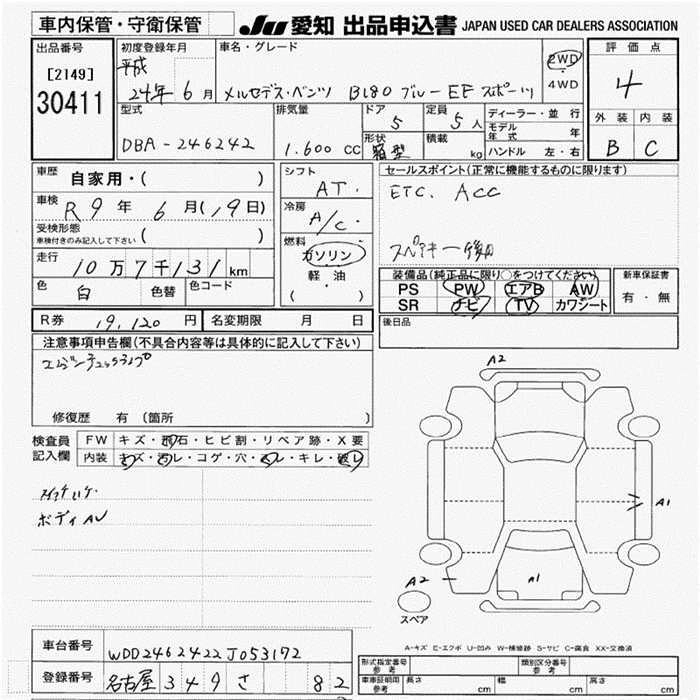 車内保管・守衛保管
JU 愛知 出品申込書 JAPAN USED CAR DEALERS ASSOCIATION
出品番号
[2149]
30411
初度登録年月
平成
24年 6月
車名・グレード
メルセデス・ベンツ B180 ブルーEF スポーツ
2WD
・
4WD
評価点
4
外装 内装
B C
型式
DBA-246242
排気量
1.600 CC
ドア
5
形状
箱型
定員
5人
積載
kg
ディーラー・並行
モデル年式 年
ハンドル 左・右
車歴
自家用・( )
車検
R9年 6月(19日)
受検形態
車検付きのみ記入して下さい ( )
走行
10万7千131km
色
白
色替
色コード
シフト
AT.
冷房
A/C.
燃料
ガソリン
軽油
( ・ )
セールスポイント(正常に機能するものに限ります)
ETC. ACC
スペアキー
装備品(純正品に限り○をつけてください)
PS PW エアB AW
SR ナビ TV カワシート
新車保証書
有・無
R券 19,120円
名変期限 月 日
後日品
注意事項申告欄(不具合内容等は具体的に記入して下さい)
エンジンチェックランプ
修復歴 有 (箇所
検査員
記入欄
FW キズ・飛石・ヒビ割・リペア跡・X要
内装 キズ・汚レ・コゲ・穴・スレ・キレ・破レ
ボディAU
A2
A1
A2
A1
スペア
A-キズ E-エクボ U-凹み W-補修跡 S-サビ C-腐食 XX-交換済
車台番号 WDD2462422J053172
登録番号 名古屋 349 さ 82
形式指定番号
参考
類別区分番号
参考
車庫証明用
参考
長さ cm
幅 cm
高さ cm